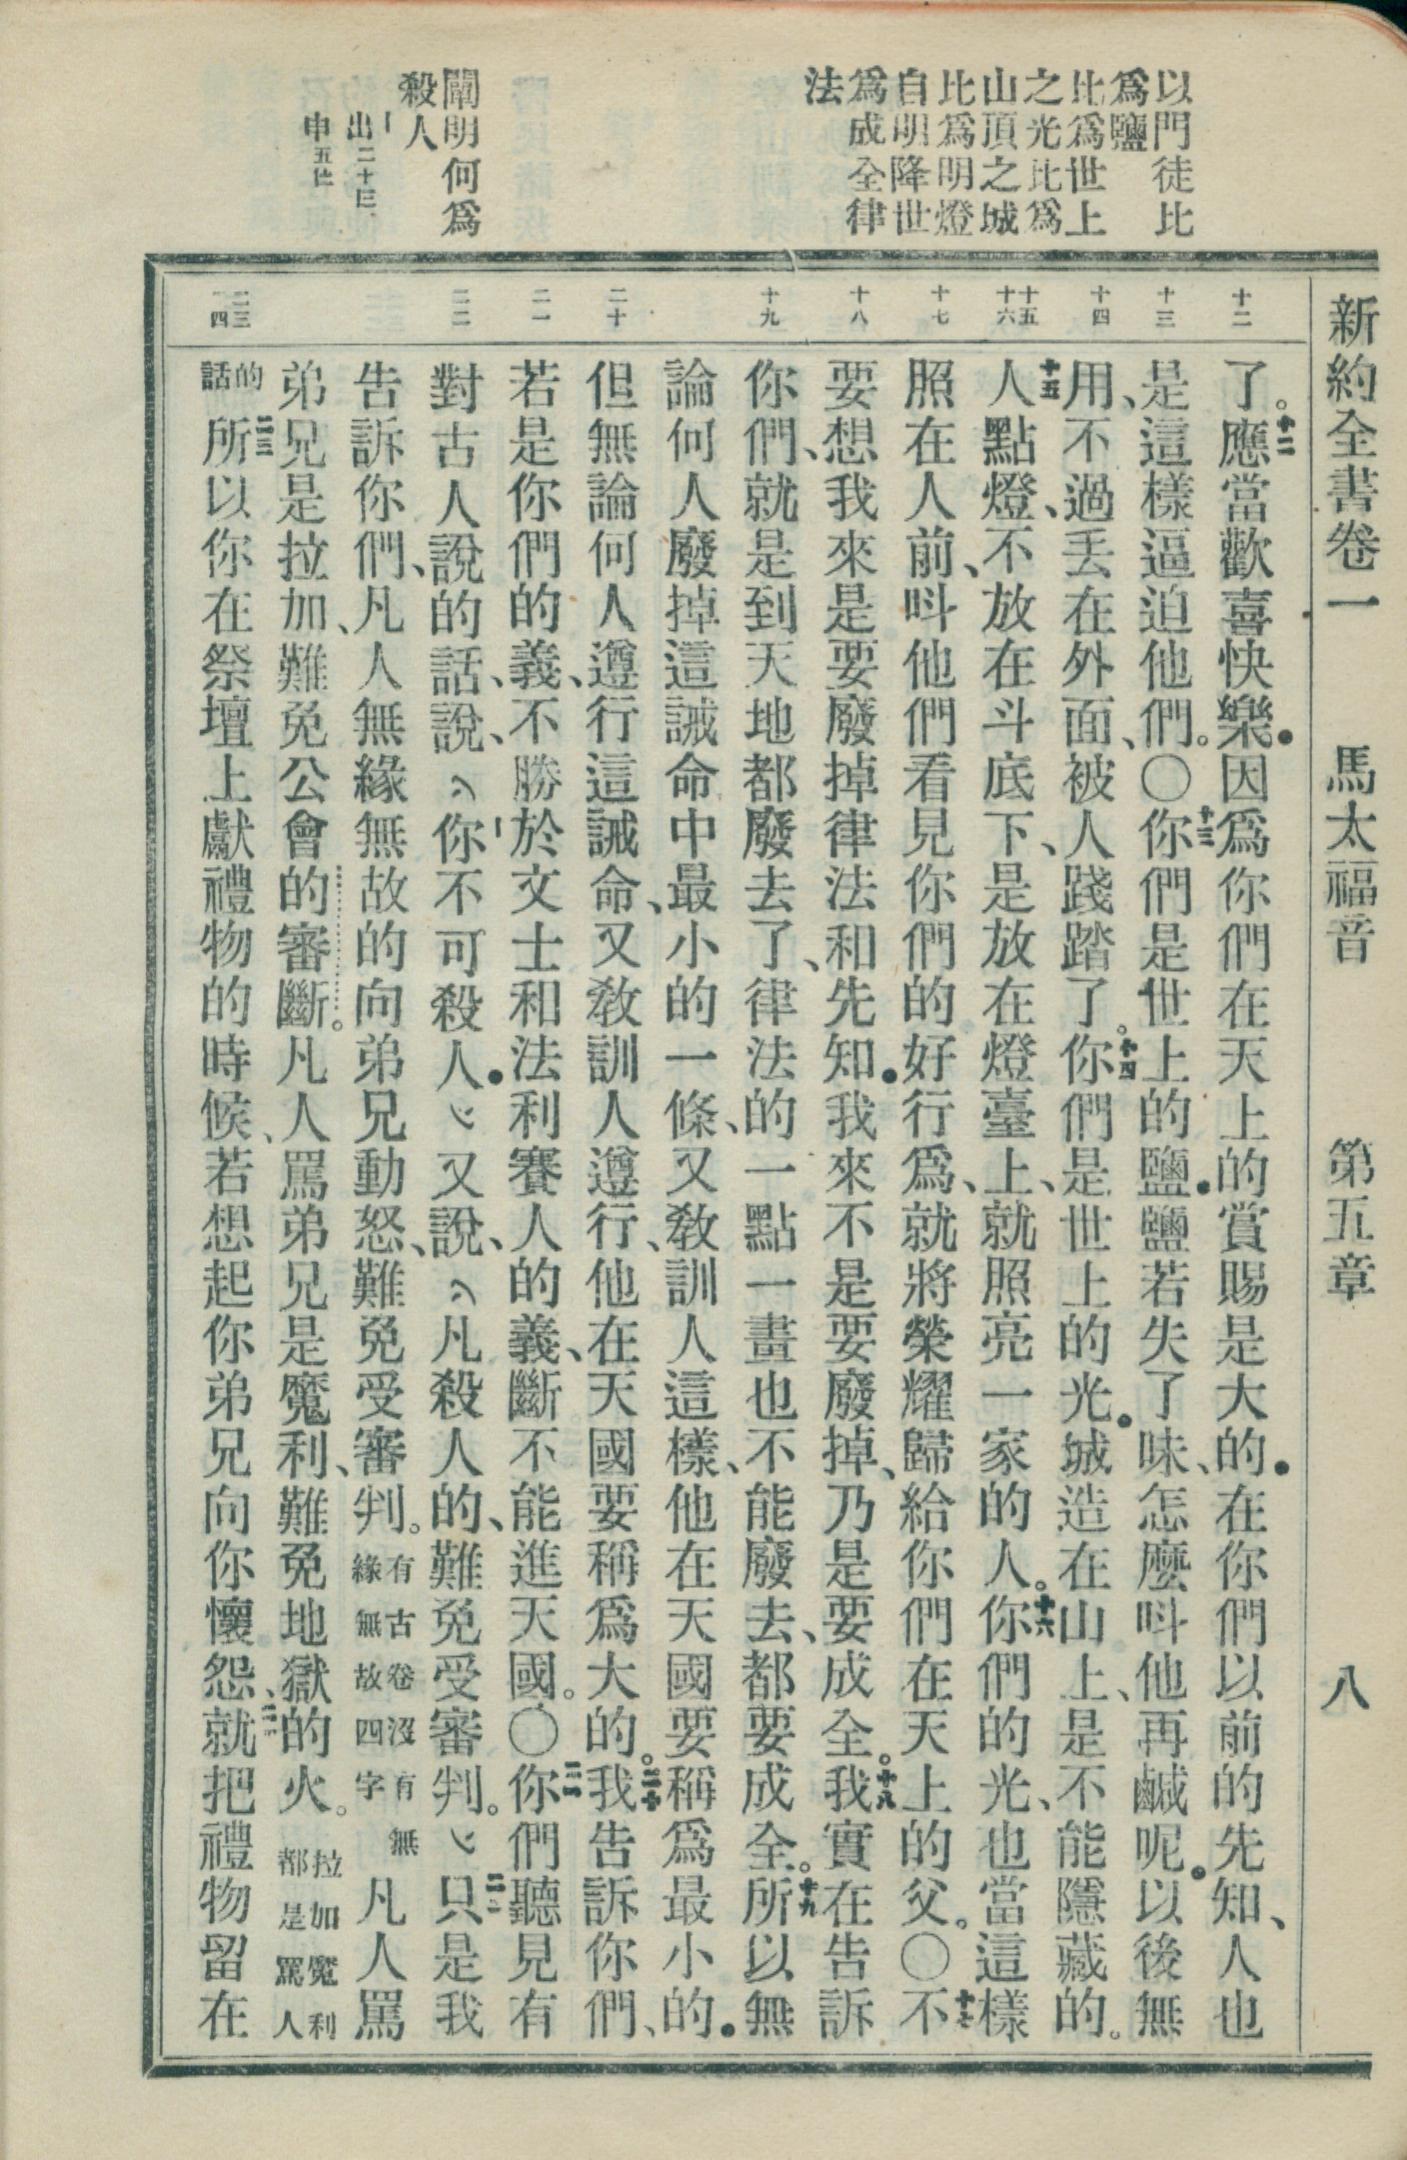 新約全書卷一　馬太福音　第五章　八
以門徒比
爲鹽
比爲世上
之光比爲
山頂之城
比爲明燈
自明降世
爲成全律
法
闡明何爲
殺人
出二十
申五
十二
十三
十四
十五
十六
十七
十八
十九
二十
二一
二二
二三
二四
了。十二應當歡喜快樂．因爲你們在天上的賞賜是大的．在你們以前的先知、人也
是這樣逼迫他們。〇十三你們是世上的鹽．鹽若失了味、怎麼呌他再鹹呢．以後無
用、不過丟在外面、被人踐踏了。十四你們是世上的光．城造在山上、是不能隱藏的。
十五人點燈、不放在斗底下、是放在燈臺上、就照亮一家的人。十六你們的光、也當這樣
照在人前、呌他們看見你們的好行爲、就將榮耀歸給你們在天上的父。〇十七不
要想我來是要廢掉律法和先知．我來不是要廢掉、乃是要成全。十八我實在告訴
你們、就是到天地都廢去了、律法的一點一畫也不能廢去、都要成全。十九所以無
論何人廢掉這誡命中最小的一條、又敎訓人這樣、他在天國要稱爲最小的．
但無論何人遵行這誡命、又敎訓人遵行、他在天國要稱爲大的。二十我告訴你們、
若是你們的義、不勝於文士和法利賽人的義、斷不能進天國。〇二一你們聽見有
對古人說的話、說、你不可殺人．又說、凡殺人的、難免受審判。二二只是我
告訴你們、凡人無緣無故的向弟兄動怒、難免受審判。有古卷沒有無緣無故四字凡人罵
弟兄是拉加、難免公會的審斷。凡人罵弟兄是魔利、難免地獄的火。拉加魔利都是罵人
的話二三所以你在祭壇上獻禮物的時候、若想起你弟兄向你懷怨、二四就把禮物留在